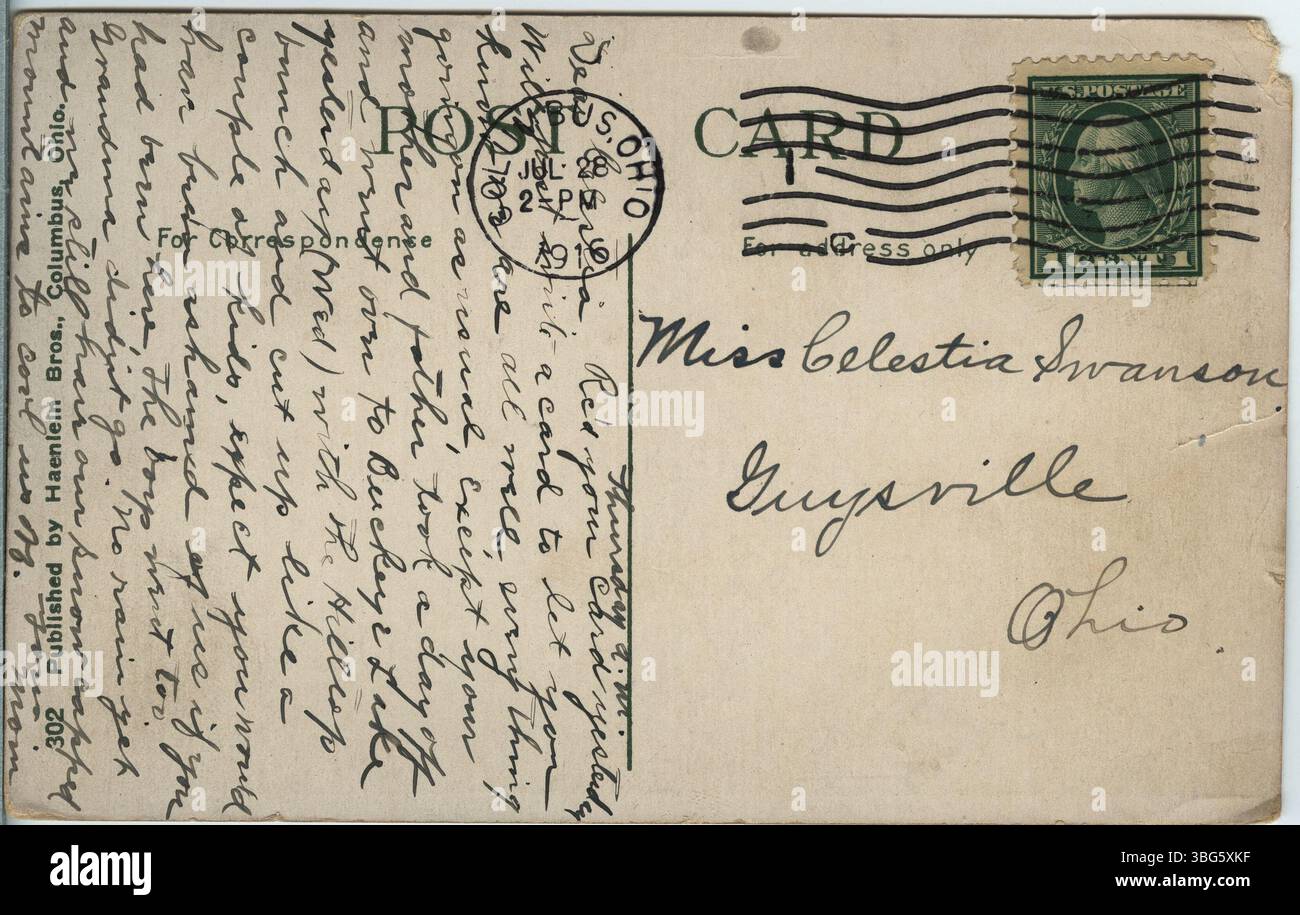 POST CARD
For Correspondence
For address only
COLUMBUS, OHIO
JUL 28
2-PM
1916
U.S. POSTAGE
1 CENT 1
Thursday a.m.
Dear Celestia. Rc'd your card yesterday
Will just write a card to let you
know we are all well, everything
going on as usual, except your
mother and father took a day off
and went over to Buckeye Lake
yesterday (Wed) with the Hilltop
bunch and cut up like a
couple of kids, expect you would
have been ashamed of us if you
had been here, the boys went too.
Grandma didn't go. No rain yet
and we still have our snow capped
mountains to cool us off.
Mom
Miss Celestia Swanson
Guysville
Ohio
302 Published by Haenlein Bros., Columbus, Ohio.
alamy
Image ID: 3BG5XKF
www.alamy.com